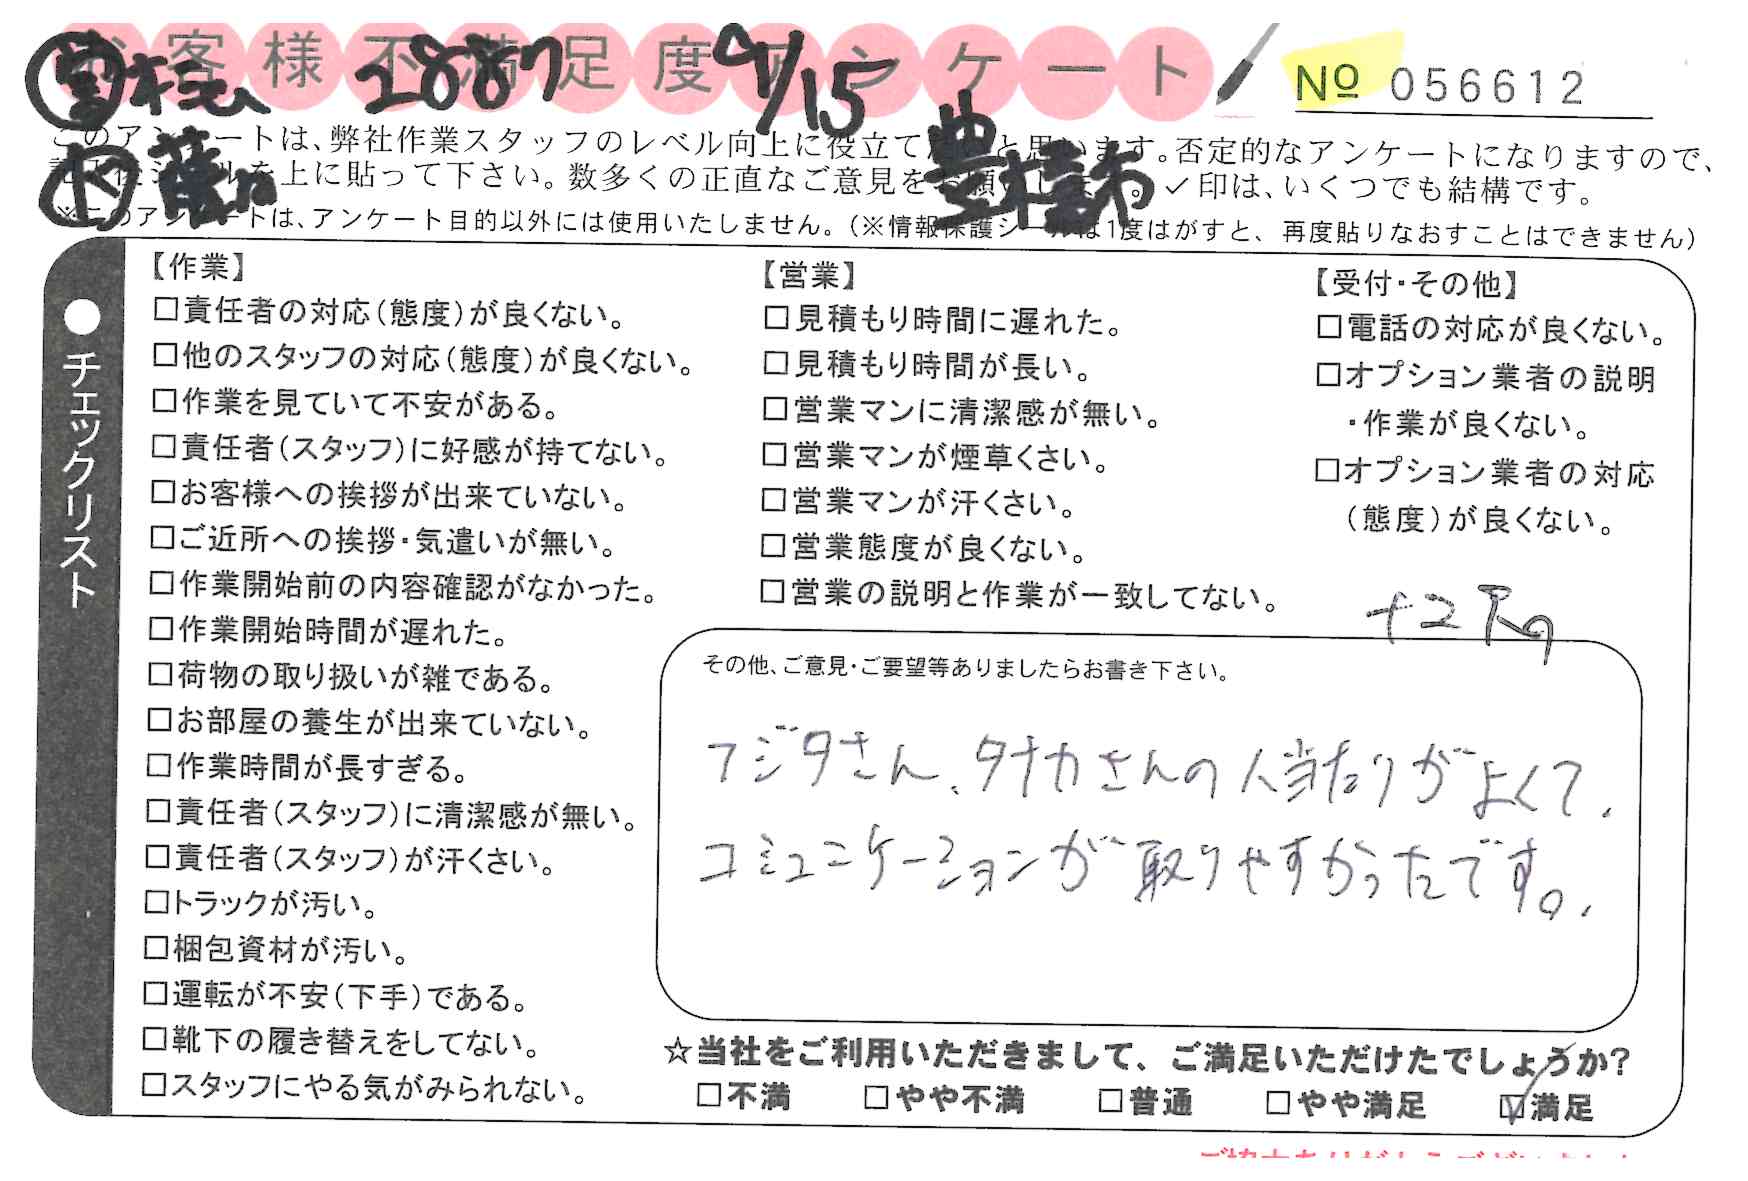 お客様不満足度アンケート
2887 9/15
No 056612
このアンケートは、弊社作業スタッフのレベル向上に役立てたいと思います。否定的なアンケートになりますので、
記入後シールを上に貼って下さい。数多くの正直なご意見をお願いします。✓印は、いくつでも結構です。
豊橋市
※このアンケートは、アンケート目的以外には使用いたしません。(※情報保護シールは1度はがすと、再度貼りなおすことはできません)
●チェックリスト
【作業】
□責任者の対応(態度)が良くない。
□他のスタッフの対応(態度)が良くない。
□作業を見ていて不安がある。
□責任者(スタッフ)に好感が持てない。
□お客様への挨拶が出来ていない。
□ご近所への挨拶・気遣いが無い。
□作業開始前の内容確認がなかった。
□作業開始時間が遅れた。
□荷物の取り扱いが雑である。
□お部屋の養生が出来ていない。
□作業時間が長すぎる。
□責任者(スタッフ)に清潔感が無い。
□責任者(スタッフ)が汗くさい。
□トラックが汚い。
□梱包資材が汚い。
□運転が不安(下手)である。
□靴下の履き替えをしてない。
□スタッフにやる気がみられない。
【営業】
□見積もり時間に遅れた。
□見積もり時間が長い。
□営業マンに清潔感が無い。
□営業マンが煙草くさい。
□営業マンが汗くさい。
□営業態度が良くない。
□営業の説明と作業が一致してない。
【受付・その他】
□電話の対応が良くない。
□オプション業者の説明
・作業が良くない。
□オプション業者の対応
(態度)が良くない。
その他、ご意見・ご要望等ありましたらお書き下さい。
フジタさん、タナカさんの人当たりがよくて、
コミュニケーションが取りやすかったです。
☆当社をご利用いただきまして、ご満足いただけたでしょうか?
□不満 □やや不満 □普通 □やや満足 ☑満足